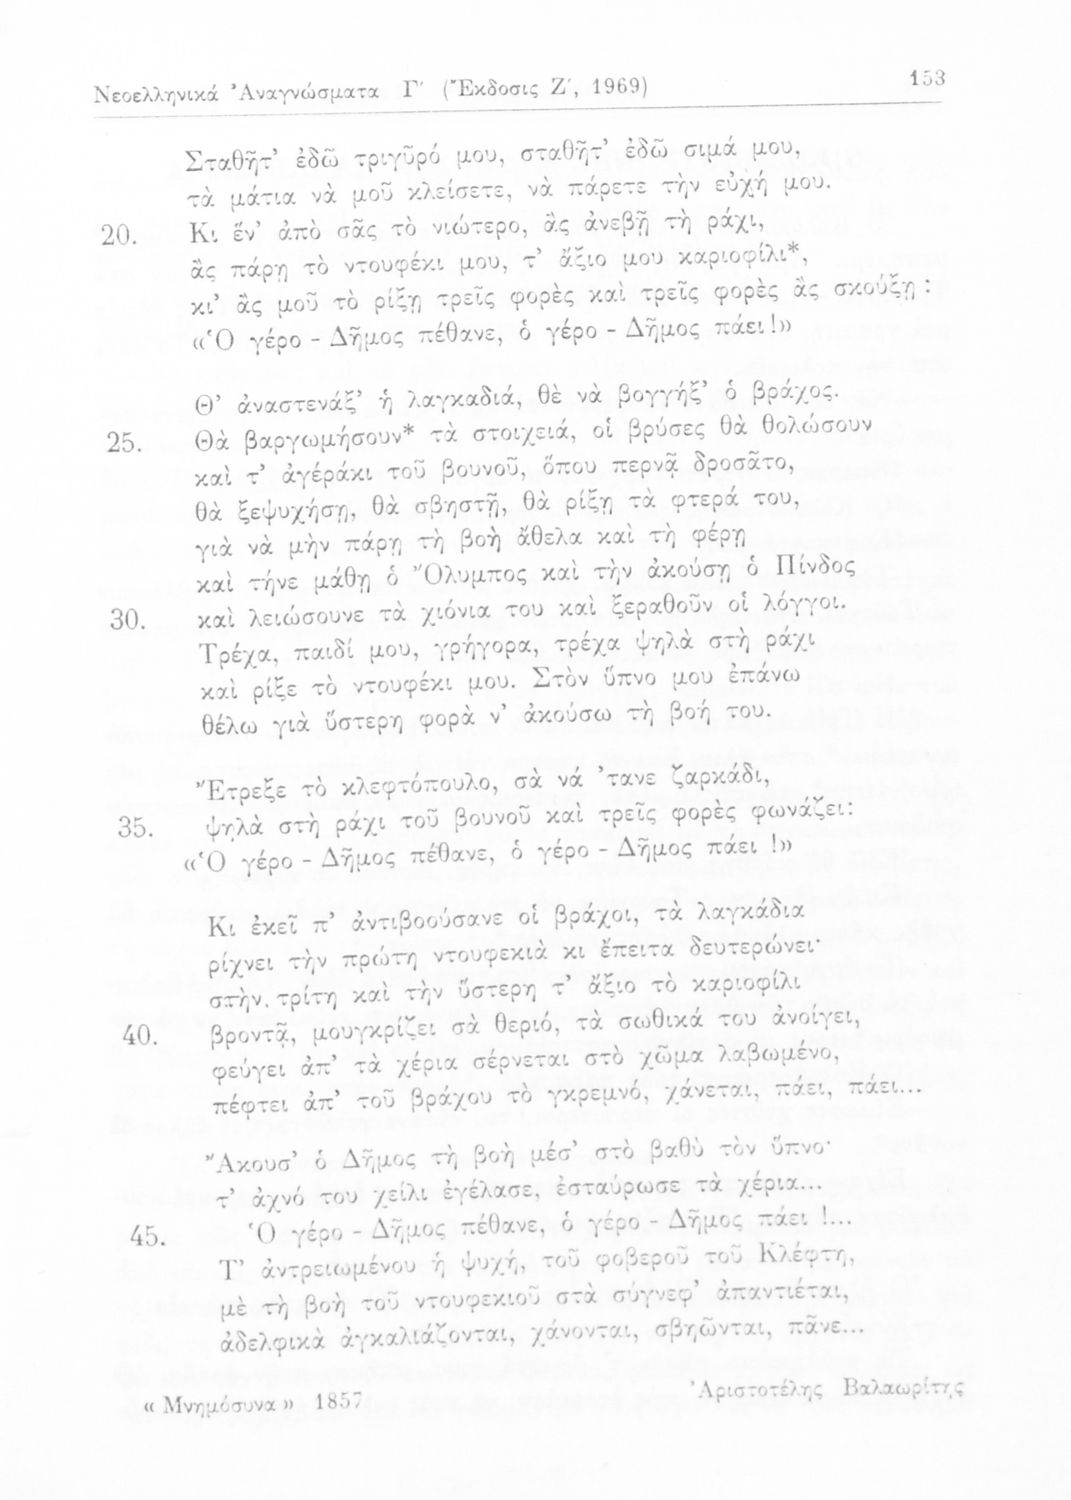 Νεοελληνικά Ἀναγνώσματα Γ΄ (Ἔκδοσις Ζ΄, 1969) 153
Σταθῆτ’ ἐδῶ τριγῦρό μου, σταθῆτ’ ἐδῶ σιμά μου,
τὰ μάτια νὰ μοῦ κλείσετε, νὰ πάρετε τὴν εὐχή μου.
20. Κι ἕν’ ἀπὸ σᾶς τὸ νιώτερο, ἂς ἀνεβῇ τὴ ράχι,
ἂς πάρῃ τὸ ντουφέκι μου, τ’ ἄξιο μου καριοφίλι*,
κι’ ἂς μοῦ τὸ ρίξῃ τρεῖς φορὲς καὶ τρεῖς φορὲς ἂς σκούξῃ :
«Ὁ γέρο - Δῆμος πέθανε, ὁ γέρο - Δῆμος πάει!»
Θ’ ἀναστενάξ’ ἡ λαγκαδιά, θὲ νὰ βογγήξ’ ὁ βράχος.
25. Θὰ βαργωμήσουν* τὰ στοιχειά, οἱ βρύσες θὰ θολώσουν
καὶ τ’ ἀγέράκι τοῦ βουνοῦ, ὅπου περνᾷ δροσᾶτο,
θὰ ξεψυχήσῃ, θὰ σβηστῇ, θὰ ρίξῃ τὰ φτερά του,
γιὰ νὰ μὴν πάρῃ τὴ βοὴ ἄθελα καὶ τὴ φέρῃ
καὶ τήνε μάθῃ ὁ Ὄλυμπος καὶ τὴν ἀκούσῃ ὁ Πίνδος
30. καὶ λειώσουνε τὰ χιόνια του καὶ ξεραθοῦν οἱ λόγγοι.
Τρέχα, παιδί μου, γρήγορα, τρέχα ψηλὰ στὴ ράχι
καὶ ρίξε τὸ ντουφέκι μου. Στὸν ὕπνο μου ἐπάνω
θέλω γιὰ ὕστερη φορὰ ν’ ἀκούσω τὴ βοή του.
Ἔτρεξε τὸ κλεφτόπουλο, σὰ νά ’τανε ζαρκάδι,
35. ψηλὰ στὴ ράχι τοῦ βουνοῦ καὶ τρεῖς φορὲς φωνάζει:
«Ὁ γέρο - Δῆμος πέθανε, ὁ γέρο - Δῆμος πάει !»
Κι ἐκεῖ π’ ἀντιβοούσανε οἱ βράχοι, τὰ λαγκάδια
ρίχνει τὴν πρώτη ντουφεκιὰ κι ἔπειτα δευτερώνει·
στὴν. τρίτη καὶ τὴν ὕστερη τ’ ἄξιο τὸ καριοφίλι
40. βροντᾷ, μουγκρίζει σὰ θεριό, τὰ σωθικά του ἀνοίγει,
φεύγει ἀπ’ τὰ χέρια σέρνεται στὸ χῶμα λαβωμένο,
πέφτει ἀπ’ τοῦ βράχου τὸ γκρεμνό, χάνεται, πάει, πάει...
Ἄκουσ’ ὁ Δῆμος τὴ βοὴ μέσ’ στὸ βαθὺ τὸν ὕπνο·
τ’ ἀχνό του χείλι ἐγέλασε, ἐσταύρωσε τὰ χέρια...
45. Ὁ γέρο - Δῆμος πέθανε, ὁ γέρο - Δῆμος πάει !...
Τ’ ἀντρειωμένου ἡ ψυχή, τοῦ φοβεροῦ τοῦ Κλέφτη,
μὲ τὴ βοὴ τοῦ ντουφεκιοῦ στὰ σύγνεφ’ ἀπαντιέται,
ἀδελφικὰ ἀγκαλιάζονται, χάνονται, σβηῶνται, πᾶνε...
« Μνημόσυνα » 1857 Ἀριστοτέλης Βαλαωρίτης